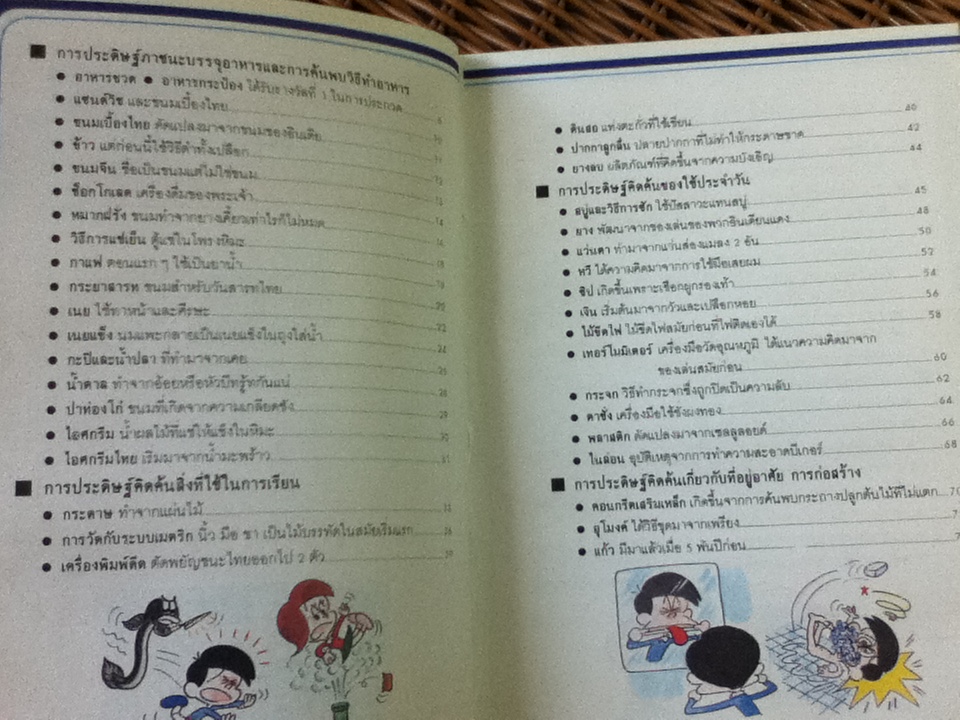 ■ การประดิษฐ์ภาชนะบรรจุอาหารและการค้นพบวิธีทำอาหาร
● อาหารขวด ● อาหารกระป๋อง ได้รับรางวัลที่ 1 ในการประกวด
● แซนด์วิช และขนมเบื้องไทย
● ขนมเบื้องไทย ดัดแปลงมาจากขนมของอินเดีย
● ข้าว แต่ก่อนนี้ใช้วิธีตำทั้งเปลือก
● ขนมจีน ชื่อเป็นขนมแต่ไม่ใช่ขนม
● ช็อกโกเลต เครื่องดื่มของพระเจ้า
● หมากฝรั่ง ขนมทำจากยางเคี้ยวเท่าไรก็ไม่หมด
● วิธีการแช่เย็น ตู้แช่ในโพรงหิมะ
● กาแฟ ตอนแรก ๆ ใช้เป็นยาน้ำ
● กระยาสารท ขนมสำหรับวันสารทไทย
● เนย ใช้ทาหน้าและศีรษะ
● เนยแข็ง นมแพะกลายเป็นเนยแข็งในถุงใส่น้ำ
● กะปิและน้ำปลา ที่ทำมาจากเคย
● น้ำตาล ทำจากอ้อยหรือหัวบีทรู้ทกันแน่
● ปาท่องโก๋ ขนมที่เกิดจากความเกลียดชัง
● ไอศกรีม น้ำผลไม้ที่แช่ให้แข็งในหิมะ
● ไอศกรีมไทย เริ่มมาจากน้ำมะพร้าว
■ การประดิษฐ์คิดค้นสิ่งที่ใช้ในการเรียน
● กระดาษ ทำจากแผ่นไม้
● การวัดกับระบบเมตริก นิ้ว มือ ขา เป็นไม้บรรทัดในสมัยเริ่มแรก
● เครื่องพิมพ์ดีด ตัดพยัญชนะไทยออกไป 2 ตัว
● ดินสอ แท่งตะกั่วที่ใช้เขียน 40
● ปากกาลูกลื่น ปลายปากกาที่ไม่ทำให้กระดาษขาด 42
● ยางลบ ผลิตภัณฑ์ที่คิดขึ้นจากความบังเอิญ 44
■ การประดิษฐ์คิดค้นของใช้ประจำวัน
● สบู่และวิธีการซัก ใช้ปัสสาวะแทนสบู่ 45
● ยาง พัฒนาจากของเล่นของพวกอินเดียนแดง 48
● แว่นตา ทำมาจากแว่นส่องแมลง 2 อัน 50
● หวี ได้ความคิดมาจากการใช้มือเสยผม 52
● ซิป เกิดขึ้นเพราะเชือกผูกรองเท้า 54
● เงิน เริ่มต้นมาจากวัวและเปลือกหอย 56
● ไม้ขีดไฟ ไม้ขีดไฟสมัยก่อนที่ไฟติดเองได้ 58
● เทอร์โมมิเตอร์ เครื่องมือวัดอุณหภูมิ ได้แนวความคิดมาจาก
ของเล่นสมัยก่อน 60
● กระจก วิธีทำกระจกซึ่งถูกปิดเป็นความลับ 62
● ตาชั่ง เครื่องมือใช้ชั่งผงทอง 64
● พลาสติก ดัดแปลงมาจากเซลลูลอยด์ 66
● ไนล่อน อุบัติเหตุจากการทำความสะอาดบีเกอร์ 68
■ การประดิษฐ์คิดค้นเกี่ยวกับที่อยู่อาศัย การก่อสร้าง
● คอนกรีตเสริมเหล็ก เกิดขึ้นจากการค้นพบกระถางปลูกต้นไม้ที่ไม่แตก 70
● อุโมงค์ ได้วิธีขุดมาจากเพรียง 7
● แก้ว มีมาแล้วเมื่อ 5 พันปีก่อน 7